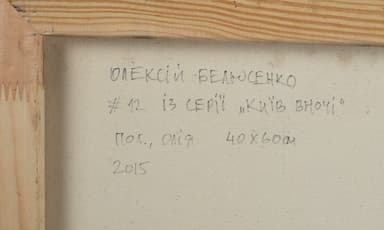 ОЛЕКСІЙ БЕЛЮСЕНКО
# 12 ІЗ СЕРІЇ „КИЇВ ВНОЧІ"
ПОЛ., ОЛІЯ 40X60см
2015